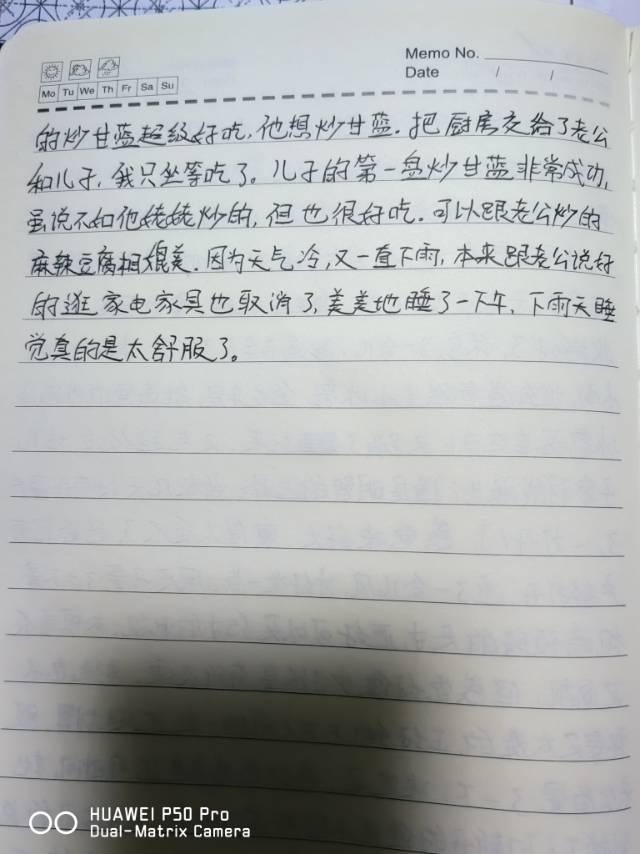 Memo No.
Date / /
Mo Tu We Th Fr Sa Su
的炒甘蓝超级好吃,他想炒甘蓝.把厨房交给了老公
和儿子,我只坐等吃了。儿子的第一盘炒甘蓝非常成功,
虽说不如他姥姥炒的,但也很好吃.可以跟老公炒的
麻辣豆腐相媲美.因为天气冷,又一直下雨,本来跟老公说好
的逛家电家具也取消了,美美地睡了一下午,下雨天睡
觉真的是太舒服了。
HUAWEI P50 Pro
Dual-Matrix Camera